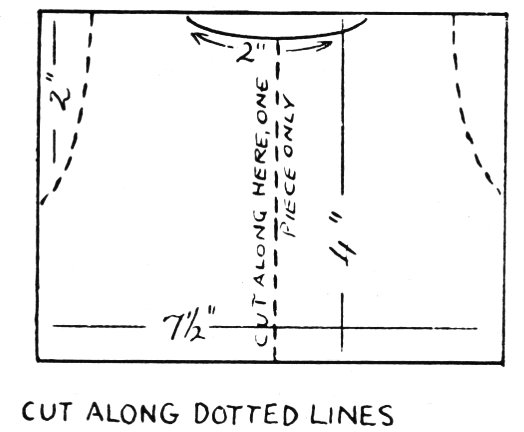 2"
2"
CUT ALONG HERE, ONE
PIECE ONLY
4"
7½"
CUT ALONG DOTTED LINES